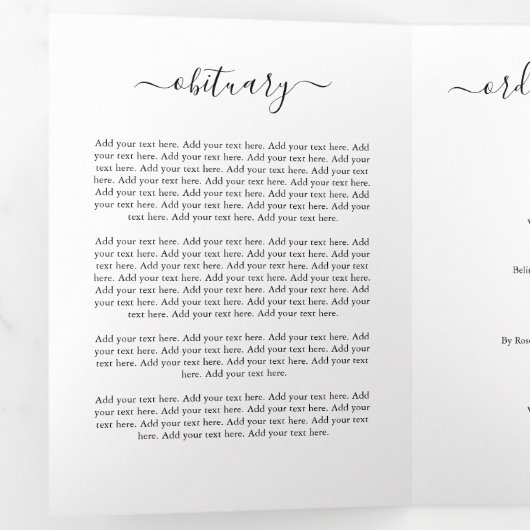 obituary
Add your text here. Add your text here. Add your text here. Add
your text here. Add your text here. Add your text here. Add your
text here. Add your text here. Add your text here. Add your text
here. Add your text here. Add your text here. Add your text here.
Add your text here. Add your text here. Add your text here. Add
your text here. Add your text here. Add your text here. Add your
text here. Add your text here. Add your text here.
Add your text here. Add your text here. Add your text here. Add
your text here. Add your text here. Add your text here. Add your
text here. Add your text here. Add your text here. Add your text
here. Add your text here. Add your text here. Add your text here.
Add your text here. Add your text here. Add your text here. Add
your text here. Add your text here. Add your text here. Add your
text here. Add your text here. Add your text here.
Add your text here. Add your text here. Add your text here. Add
your text here. Add your text here. Add your text here. Add your
text here. Add your text here. Add your text here. Add your text
here. Add your text here.
Add your text here. Add your text here. Add your text here. Add
your text here. Add your text here. Add your text here. Add your
text here. Add your text here. Add your text here. Add your text
here. Add your text here. Add your text here.
ord
Belin
By Rose